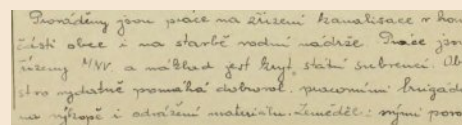 Prováděny jsou práce na zřízení kanalisace v hor
části obce i na starbě vodní nádrže. Práce jso
řízeny MNV. a náklad jest kryt státní subvencí. Ob
stvo vydatně pomáhá dobrovol. pracovními brigáda
na výkopě i odvážení materiálu. Zeměděl. svými poro